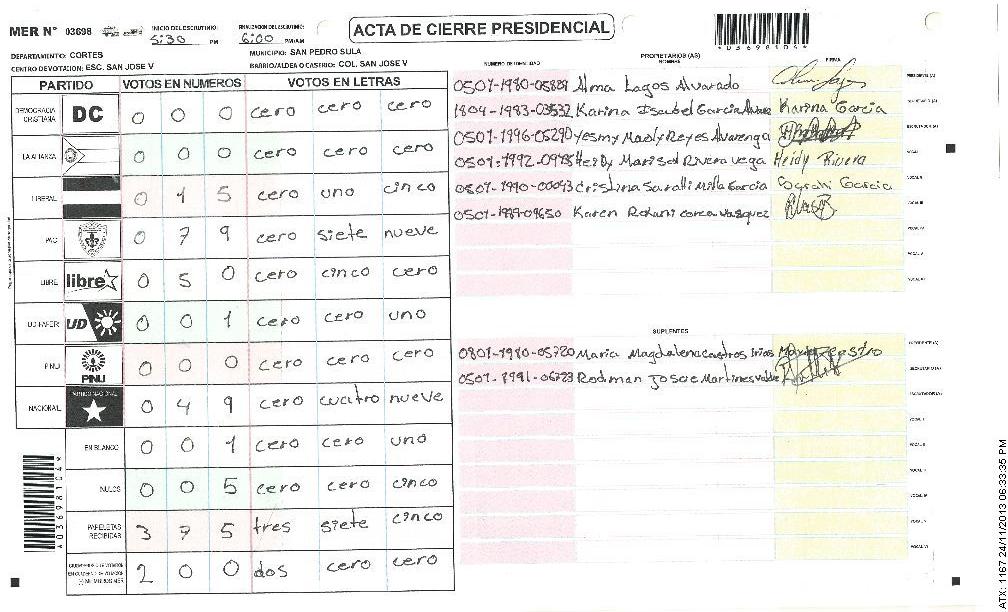 MER N° 03698
INICIO DEL ESCRUTINIO: 5:30 PM
FINALIZACION DEL ESCRUTINIO: 6:00 PM/AM
ACTA DE CIERRE PRESIDENCIAL
*03698104*
DEPARTAMENTO: CORTES
MUNICIPIO: SAN PEDRO SULA
CENTRO DE VOTACION: ESC. SAN JOSE V
BARRIO/ALDEA O CASERIO: COL. SAN JOSE V
PARTIDO VOTOS EN NUMEROS VOTOS EN LETRAS
DEMOCRACIA CRISTIANA DC 0 0 0 cero cero cero
LA ALIANZA 0 0 0 cero cero cero
LIBERAL 0 1 5 cero uno cinco
PAC 0 7 9 cero siete nueve
LIBRE libre 0 5 0 cero cinco cero
UD-FAPER UD 0 0 1 cero cero uno
PINU PINU 0 0 0 cero cero cero
NACIONAL PARTIDO NACIONAL 0 4 9 cero cuatro nueve
EN BLANCO 0 0 1 cero cero uno
NULOS 0 0 5 cero cero cinco
PAPELETAS RECIBIDAS 3 7 5 tres siete cinco
2 0 0 dos cero cero
*03698104*
PROPIETARIOS (AS)
NUMERO DE IDENTIDAD NOMBRE FIRMA
Alma Lagos Alvarado PRESIDENTE (A)
1804-1993-03532 Karina Isabel Garcia Karina Garcia SECRETARIO (A)
0501-1996-05290 Yesmy Reyes Alvarenga ESCRUTADOR (A)
Heidy Marisol Rivera Vega Heidy Rivera VOCAL I
0801-1990-00093 Cristina Saralli Milla Garcia Garcia VOCAL II
0501-1989-09650 Karen VOCAL III
VOCAL IV
VOCAL V
VOCAL VI
SUPLENTES
0801-1980-05720 Maria Magdalena PRESIDENTE (A)
0501-1991-06723 Rodman Josue SECRETARIO (A)
ESCRUTADOR (A)
VOCAL I
VOCAL II
VOCAL III
VOCAL IV
VOCAL V
VOCAL VI
ATX: 1167 24/11/2013 06:33:35 PM